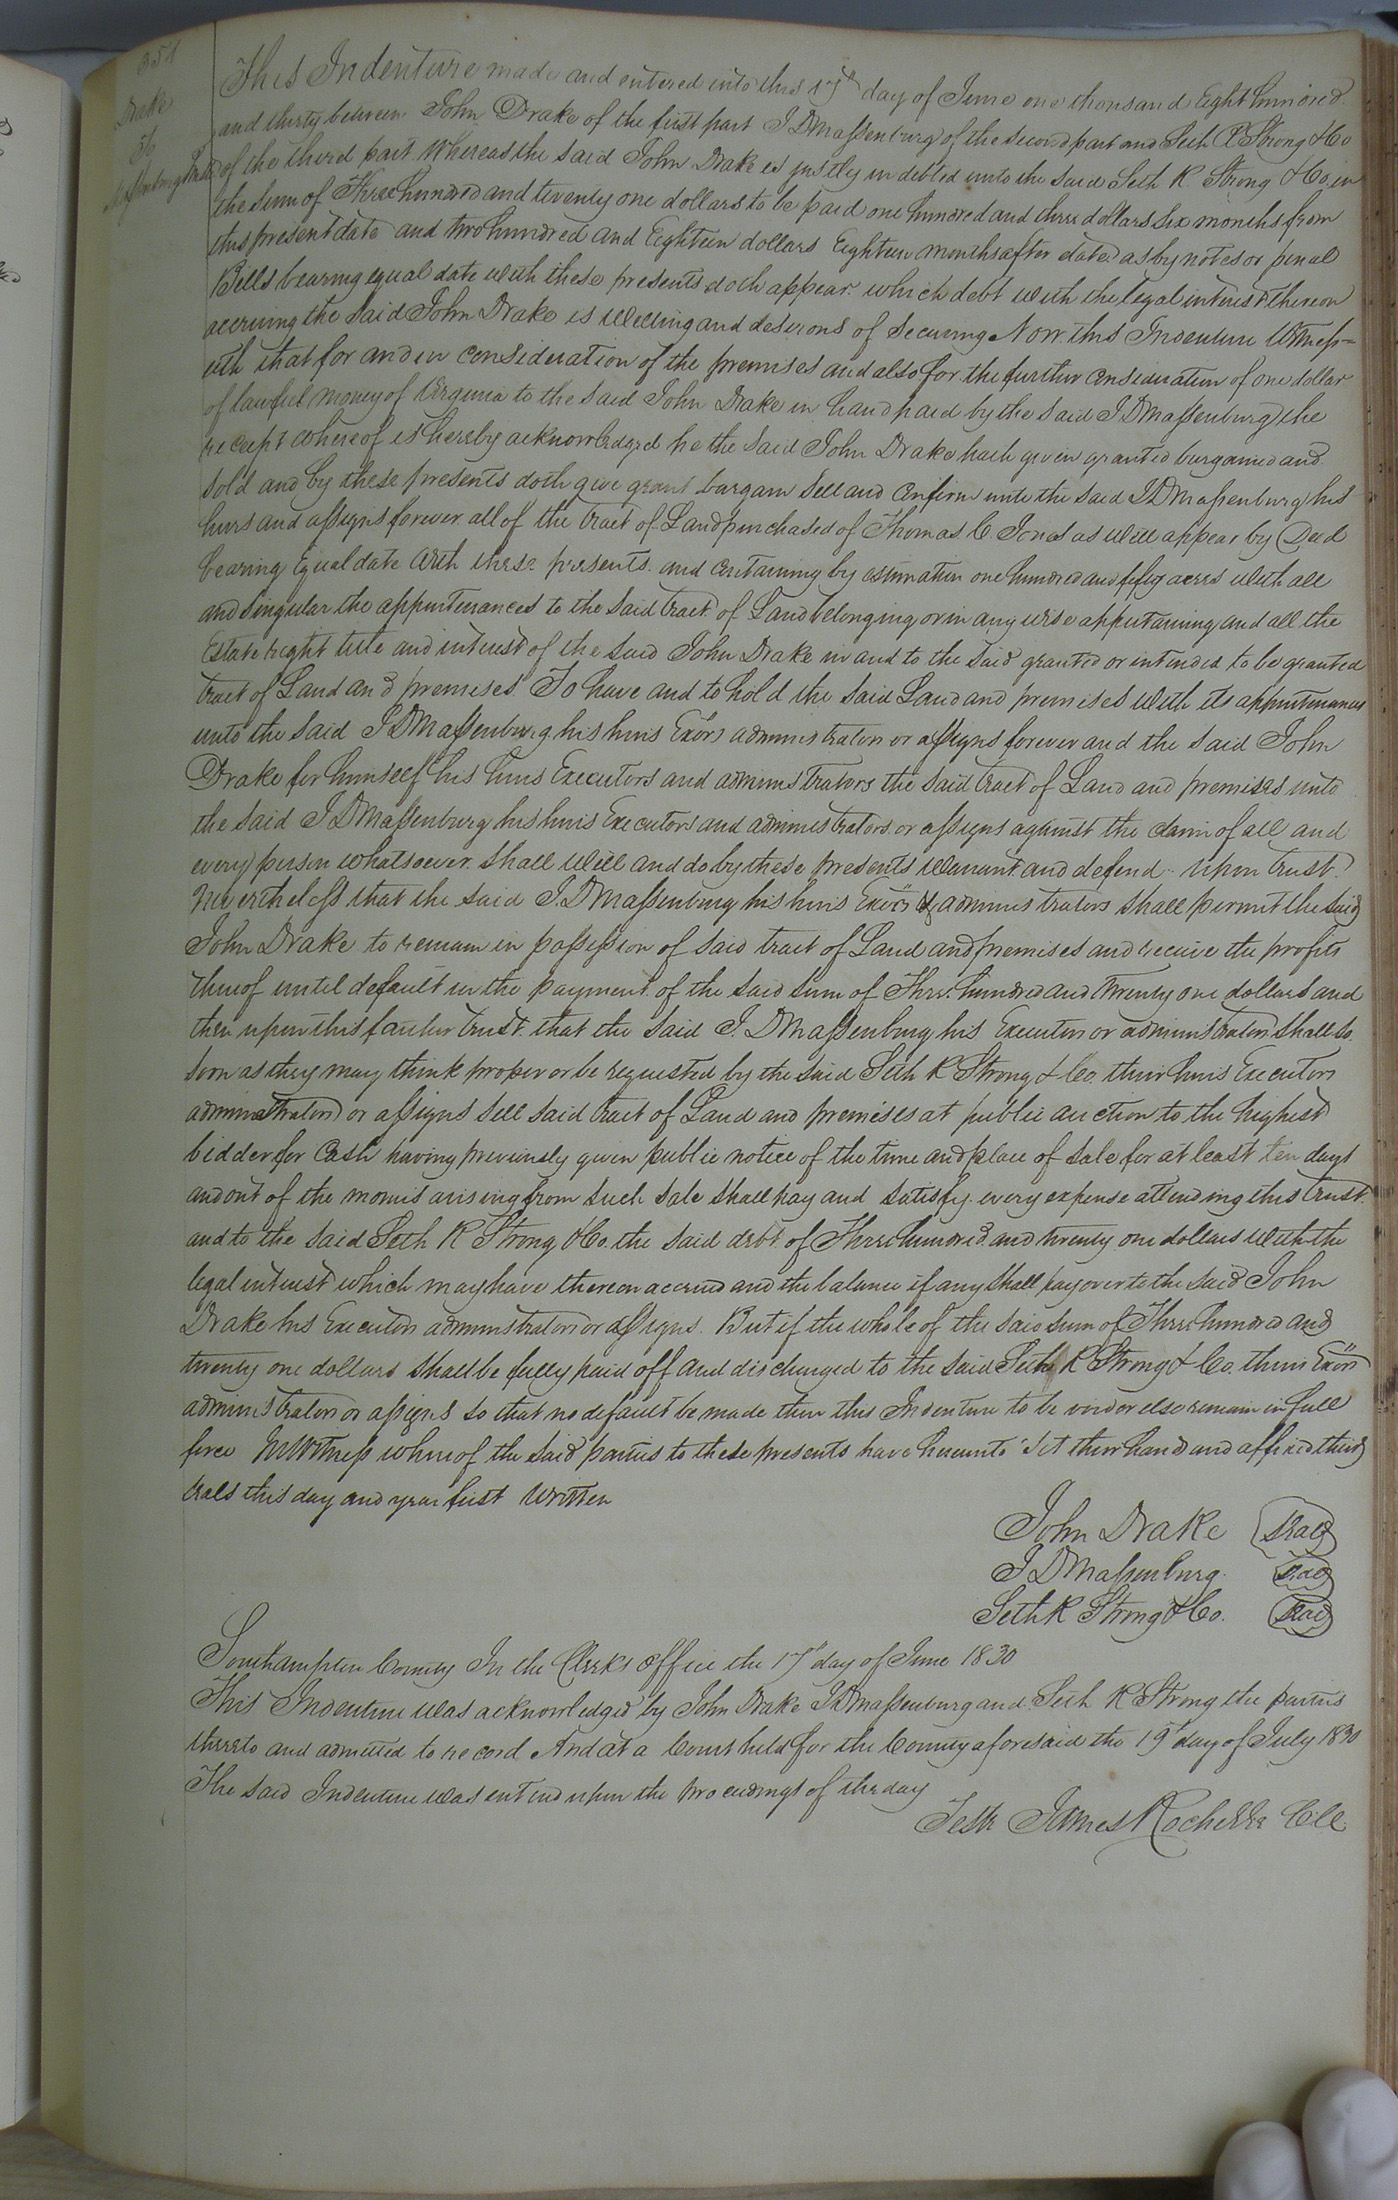 351
Drake
To
Massenburg Trustee
This Indenture made and entered into this 17th day of June one thousand Eight hundred
and thirty between John Drake of the first part J D Massenburg of the second part and Seth R Strong & Co
of the third part Whereas the said John Drake is justly indebted unto the said Seth R. Strong & Co in
the sum of Three hundred and twenty one dollars to be paid one hundred and three dollars six months from
this present date and two hundred and Eighteen dollars Eighteen months after date as by notes or penal
Bills bearing equal date with these presents doth appear which debt with the legal interest thereon
accruing the said John Drake is Willing and desirous of securing Now this Indenture Witness=
eth that for and in consideration of the premises and also for the further consideration of one dollar
of lawful money of Virginia to the said John Drake in hand paid by the said J D Massenburg the
receipt whereof is hereby acknowledged he the said John Drake hath given granted bargained and
sold and by these presents doth give grant bargain sell and confirm unto the said J D Massenburg his
heirs and assigns forever all of the tract of Land purchased of Thomas C. Jones as will appear by Deed
bearing Equal date with these presents and containing by estimation one hundred and fifty acres with all
and singular the appurtenances to the said tract of Land belonging or in any wise appertaining and all the
Estate right title and interest of the said John Drake in and to the said granted or intended to be granted
tract of Land and premises To have and to hold the said Land and premises with its appurtenances
unto the said J D Massenburg his heirs Exors administrators or assigns forever and the said John
Drake for himself his heirs Executors and administrators the said tract of Land and premises unto
the said J D Massenburg his heirs Executors and administrators or assigns against the claim of all and
every person whatsoever shall will and do by these presents warrant and defend upon trust
Nevertheless that the said J. D Massenburg his heirs Exors & administrators shall permit the said
John Drake to remain in possession of said tract of Land and premises and receive the profits
thereof until default in the payment of the said sum of Three hundred and twenty one dollars and
then upon this further trust that the said J. D Massenburg his Executors or administrators shall so
soon as they may think proper or be requested by the said Seth R Strong & Co. their heirs Executors
administrators or assigns sell said tract of Land and premises at public auction to the highest
bidder for Cash having previously given public notice of the time and place of sale for at least ten days
and out of the monies arising from such sale shall pay and satisfy every expense attending this trust
and to the said Seth R Strong & Co. the said debt of Three hundred and twenty one dollars with the
legal interest which may have thereon accrued and the balance if any shall pay over to the said John
Drake his Executors administrators or assigns. But if the whole of the said sum of Three hundred and
twenty one dollars shall be fully paid off and discharged to the said Seth R Strong & Co. their Exors
administrators or assigns so that no default be made then this Indenture to be void or else remain in full
force In Witness whereof the said parties to these presents have hereunto set their hands and affixed their
seals this day and year first written
John Drake Seal
J D Massenburg. Seal
Seth R Strong & Co. Seal
Southampton County In the Clerks office the 17th day of June 1830
This Indenture was acknowledged by John Drake J D Massenburg and Seth R Strong the parties
thereto and admitted to record And at a Court held for the County aforesaid the 19th day of July 1830
The said Indenture was entered upon the proceedings of the day
Teste James Rochelle C.C.